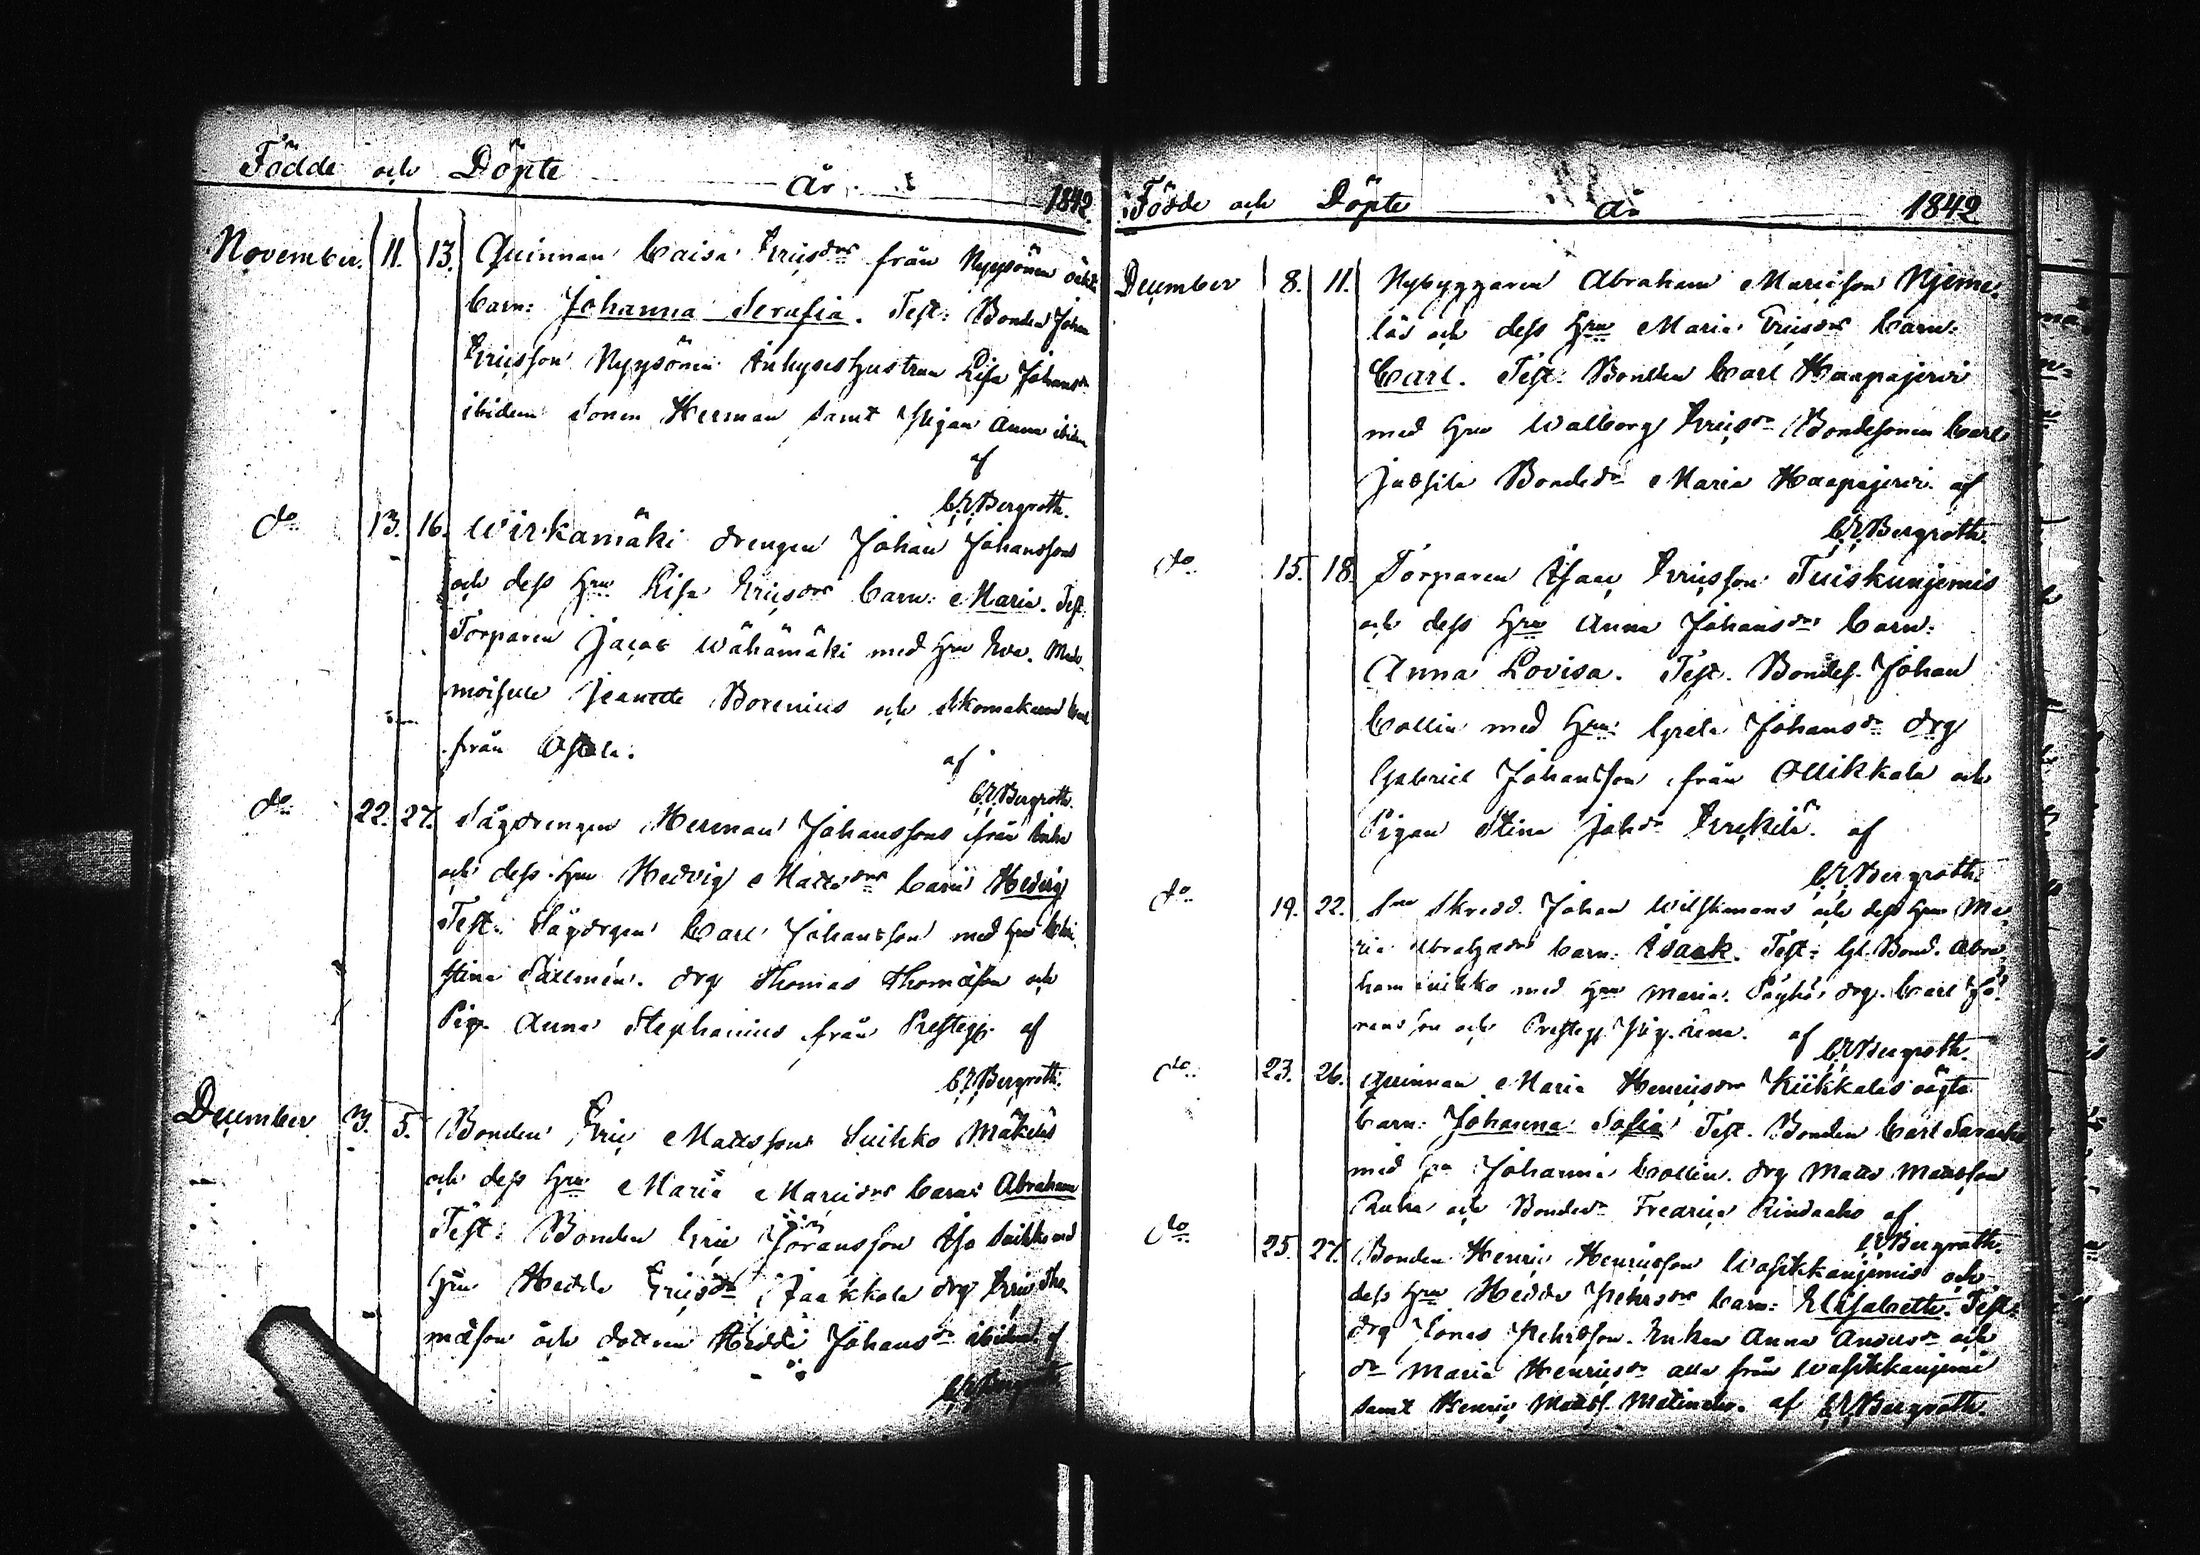 Födde och Döpte år 1842
November. 11. 13. Quinnan Caisa Ericsdrs från Nyysönen oäkta
barn: Johanna Serafia. Test: Bonden Johan
Ericsson Nyysönen Inhyseshustrun Lisa Johansdr
ibidem Sonen Herman samt Pigan Anna ibidem
af
C.E. Bergroth.
do 13. 16. Wirkamäki drengen Johan Johanssons
och dess Hru Lisa Ericsdrs barn: Maria. Test:
Torparen Jacob Wähämäki med Hru Eva. Made-
moiselle Jeanette Borenius och Skomakaren Carl
från
af
C.E. Bergroth.
do 22. 27. Sågdrengen Herman Johanssons från
och dess Hru Hedvig Mattsdrs barn Hedvig
Test: Sågdrgen Carl Johansson med Hru Chri
stina Sallmén. drg Thomas Thomasson och
Pig. Anna Stephanius från Prestegg. af
C.E. Bergroth.
December 3. 5. Bonden Eric Mattssons Suihko Mäkeläs
och dess Hru Maria Mariedrs barn: Abraham
Test: Bonden Eric Jöransson Iso Suihko med
Hru Hedda Ericsdr Jaakkola drg Eric Tho
masson och dottren Hedda Johansdr ibidem af
C.E. Bergroth
Födde och Döpte år 1842
December 8. 11. Nybyggaren Abraham Mariæson Njeme-
läs och dess Hru Maria Ericsdrs barn:
Carl. Test: Bonden Carl Haapajervi
med Hru Walborg Ericsdr Bondesonen Carl
Bondedr Maria Haapajervi. af
C.E. Bergroth.
do 15. 18. Torparen Isaac Ericsson Tuiskunjemis
och dess Hru Anna Johansdrs barn:
Anna Lovisa. Test. Bondes. Johan
Collin med Hru Greta Johansdr drg
Gabriel Johansson från Ollikkala och
Pigan Stina Johdr Erckilä. af
C.E. Bergroth.
do 19. 22. Skredd. Johan Willstmans och dess Hru Ma-
ria Abrahsdrs barn: Isaak. Test: Gl. Bond. Abra-
ham Suihko med Hru Maria. drg. Carl Jö-
ransson och Prestegg. Pig. af
C.E. Bergroth.
do 23. 26. Quinnan Maria Henricsdrs Kiikkalas oägta
barn: Johanna Sofia Test. Bonden Carl
med Hru Johanna Collin. drg Matts Mattsson
Ruha och Bondedr Fredrica Rindaaho af
C.E. Bergroth.
do 25. 27. Bonden Henric Henricsson Wasikkanjemis och
dess Hru Hedda Pehrsdrs barn: Elisabeth. Test:
drg Jonas Pehrsson. Enkan Anna Andersdr och
dr Maria Henricsdr alla från Wasikkanjemi
samt Henric Matts. Matinaho. af C.E. Bergroth.